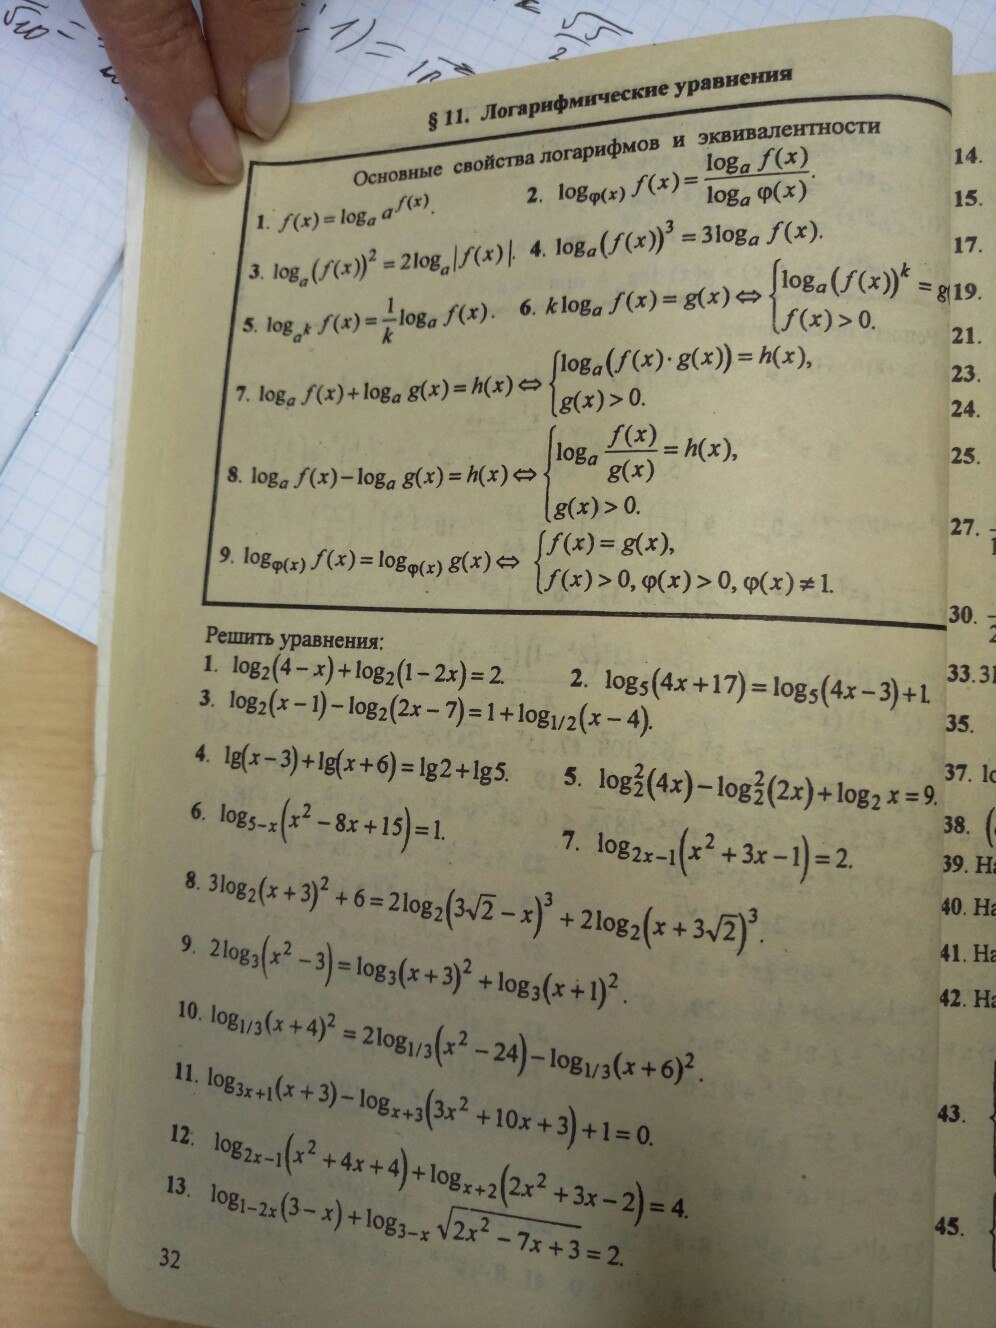 § 11. Логарифмические уравнения
Основные свойства логарифмов и эквивалентности
1. f(x) = logₐ a^{f(x)}.
2. log_{φ(x)} f(x) = \frac{logₐ f(x)}{logₐ φ(x)}.
3. logₐ(f(x))² = 2logₐ|f(x)|.
4. logₐ(f(x))³ = 3logₐ f(x).
5. log_{a^k} f(x) = \frac{1}{k} logₐ f(x).
6. k logₐ f(x) = g(x) ⇔ { logₐ(f(x))^k = g
f(x) > 0.
7. logₐ f(x) + logₐ g(x) = h(x) ⇔ { logₐ(f(x) · g(x)) = h(x),
g(x) > 0.
8. logₐ f(x) − logₐ g(x) = h(x) ⇔ { logₐ \frac{f(x)}{g(x)} = h(x),
g(x) > 0.
9. log_{φ(x)} f(x) = log_{φ(x)} g(x) ⇔ { f(x) = g(x),
f(x) > 0, φ(x) > 0, φ(x) ≠ 1.
Решить уравнения:
1. log₂(4 − x) + log₂(1 − 2x) = 2.
2. log₅(4x + 17) = log₅(4x − 3) + 1.
3. log₂(x − 1) − log₂(2x − 7) = 1 + log_{1/2}(x − 4).
4. lg(x − 3) + lg(x + 6) = lg2 + lg5.
5. log₂²(4x) − log₂²(2x) + log₂ x = 9.
6. log_{5−x}(x² − 8x + 15) = 1.
7. log_{2x−1}(x² + 3x − 1) = 2.
8. 3log₂(x + 3)² + 6 = 2log₂(3√2 − x)³ + 2log₂(x + 3√2)³.
9. 2log₃(x² − 3) = log₃(x + 3)² + log₃(x + 1)².
10. log_{1/3}(x + 4)² = 2log_{1/3}(x² − 24) − log_{1/3}(x + 6)².
11. log_{3x+1}(x + 3) − log_{x+3}(3x² + 10x + 3) + 1 = 0.
12. log_{2x−1}(x² + 4x + 4) + log_{x+2}(2x² + 3x − 2) = 4.
13. log_{1−2x}(3 − x) + log_{3−x} √(2x² − 7x + 3) = 2.
32
14.
15.
17.
19.
21.
23.
24.
25.
27.
30.
33. 31
35.
37. lo
38. (
39. На
40. На
41. На
42. На
43.
45.